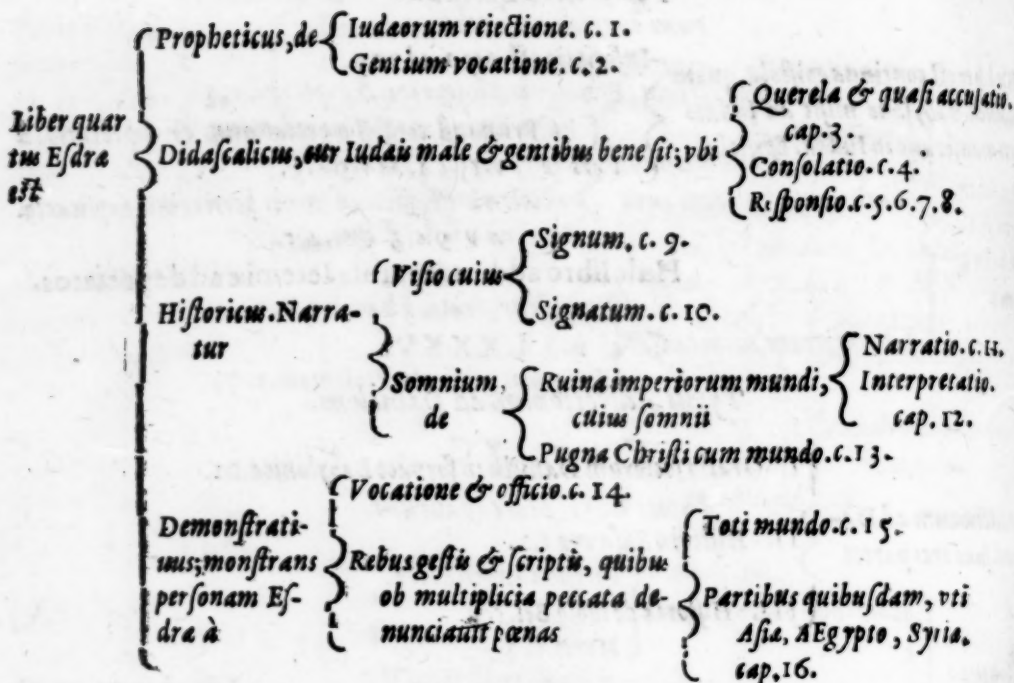 Liber quar
tus Eſdræ
eſt
Propheticus, de
Iudæorum reiectione. c. 1.
Gentium vocatione. c. 2.
Didaſcalicus, cur Iudæis male & gentibus bene ſit; vbi
Querela & quaſi accuſatio.
cap. 3.
Conſolatio. c. 4.
Reſponſio. c. 5. 6. 7. 8.
Hiſtoricus. Narra-
tur
Viſio cuius
Signum. c. 9.
Signatum. c. 10.
Somnium,
de
Ruina imperiorum mundi,
cuius ſomnii
Narratio. c. 11.
Interpretatio.
cap. 12.
Pugna Chriſti cum mundo. c. 13.
Demonſtrati-
uus; monſtrans
perſonam Eſ-
dræ à
Vocatione & officio. c. 14.
Rebus geſtis & ſcriptis, quibus
ob multiplicia peccata de-
nunciauit pœnas
Toti mundo. c. 15.
Partibus quibuſdam, vti
Aſiæ, AEgypto, Syriæ.
cap. 16.